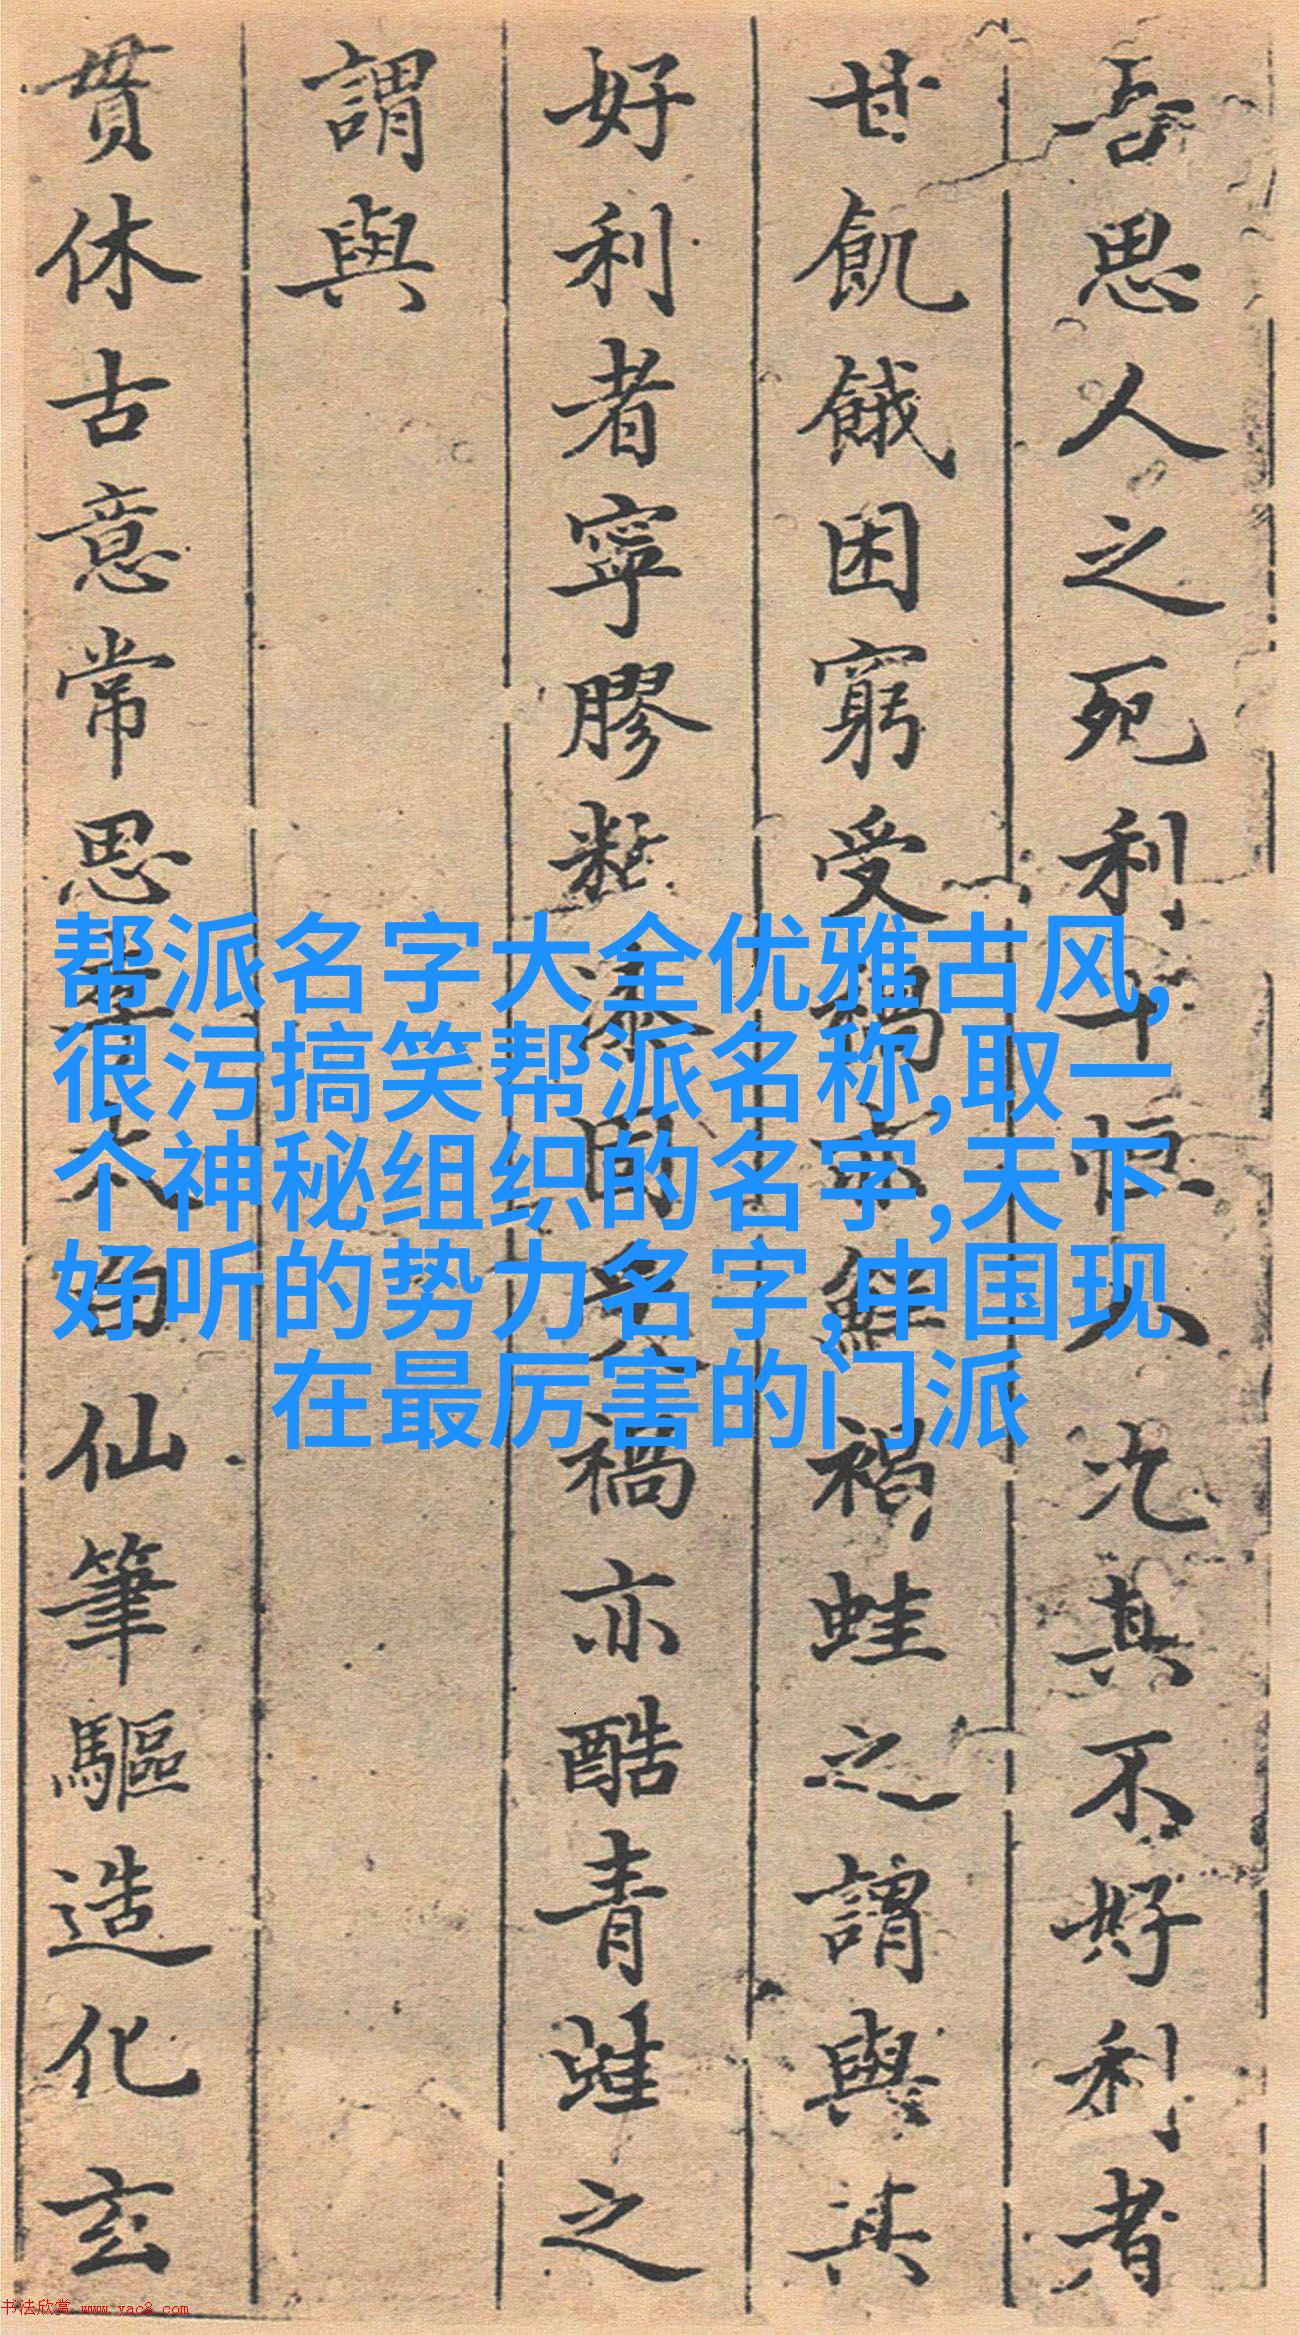 吾思人之死利十恒八况其不好利者
甘飢餓困窮受禍亦鮮禍蛙之謂與其
好利者寧膠漆禍亦酷青蛙之
謂與
貫休古意常思李太白仙筆驅造化玄
帮派名字大全优雅古风,
很污搞笑帮派名称,取一
个神秘组织的名字,天下
好听的势力名字,中国现
在最厉害的门派
书法欣赏 www.yac8.com